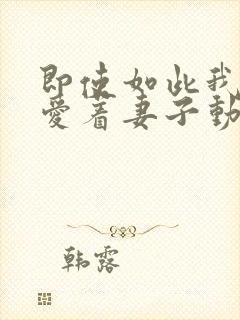 即使如此我
爱着妻子動
韩露